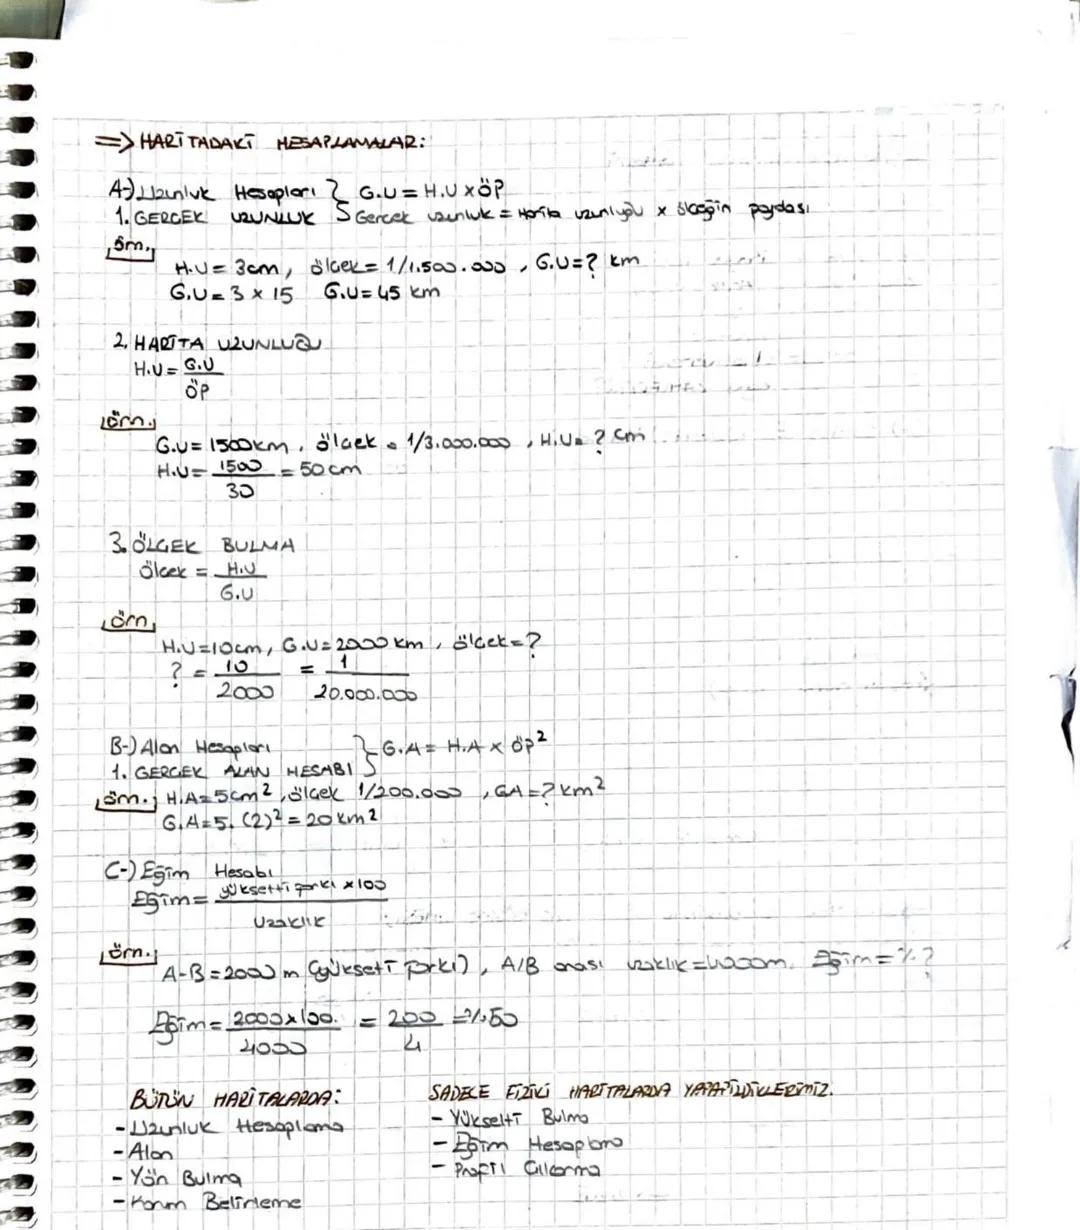 => HARİTADAKİ HESAPLAMALAR:
A-) Uzunluk Hesapları } G.U = H.U x ÖP
1. GERÇEK UZUNLUK } Gerçek uzunluk = Harita uzunluğu x ölçeğin paydası
örn.
H.U = 3cm, ölçek = 1/1.500.000, G.U = ? km
G.U = 3 x 15 G.U = 45 km
2. HARİTA UZUNLUĞU
H.U = G.U
ÖP
örn.
G.U = 1500km, ölçek = 1/3.000.000, H.U = ? cm
H.U = 1500 = 50 cm
30
3. ÖLÇEK BULMA
Ölçek = H.U
G.U
örn.
H.U = 10cm, G.U = 2000 km, ölçek = ?
? = 10 = 1
2000 20.000.000
B-) Alan Hesapları } G.A = H.A x ÖP²
1. GERÇEK ALAN HESABI
örn. H.A = 5cm², ölçek 1/200.000, GA = ? km²
G.A = 5. (2)² = 20 km²
C-) Eğim Hesabı
Eğim = yükselti farkı x 100
Uzaklık
örn.
A-B = 2000 m (yükselti farkı), A/B arası uzaklık = 4000m. Eğim = % ?
Eğim = 2000 x 100. = 200 = %50
4000 4
BÜTÜN HARİTALARDA:
- Uzunluk Hesaplama
- Alan
- Yön Bulma
- Konum Belirleme
SADECE FİZİKİ HARİTALARDA YAPABİLDİKLERİMİZ.
- Yükselti Bulma
- Eğim Hesaplama
- Profil Çıkarma